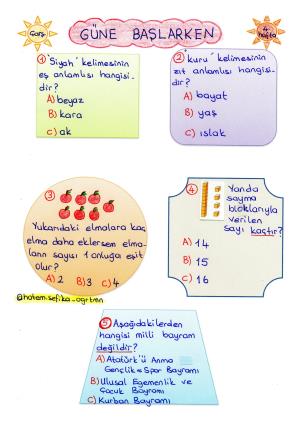 Çarş.
GÜNE BAŞLARKEN
4. hafta
① "Siyah" kelimesinin
eş anlamlısı hangisi-
dir?
A) beyaz
B) kara
C) ak
② "kuru" kelimesinin
zıt anlamlısı hangisi-
dir?
A) bayat
B) yaş
C) ıslak
③
Yukarıdaki elmalara kaç
elma daha eklersek elma-
ların sayısı 1 onluğa eşit
olur?
A) 2 B) 3 C) 4
@hatem.sefika_ogrtmn
④ Yanda
sayma
bloklarıyla
verilen
sayı kaçtır?
A) 14
B) 15
C) 16
⑤ Aşağıdakilerden
hangisi milli bayram
değildir?
A) Atatürk'ü Anma
Gençlik ve Spor Bayramı
B) Ulusal Egemenlik ve
Çocuk Bayramı
C) Kurban Bayramı